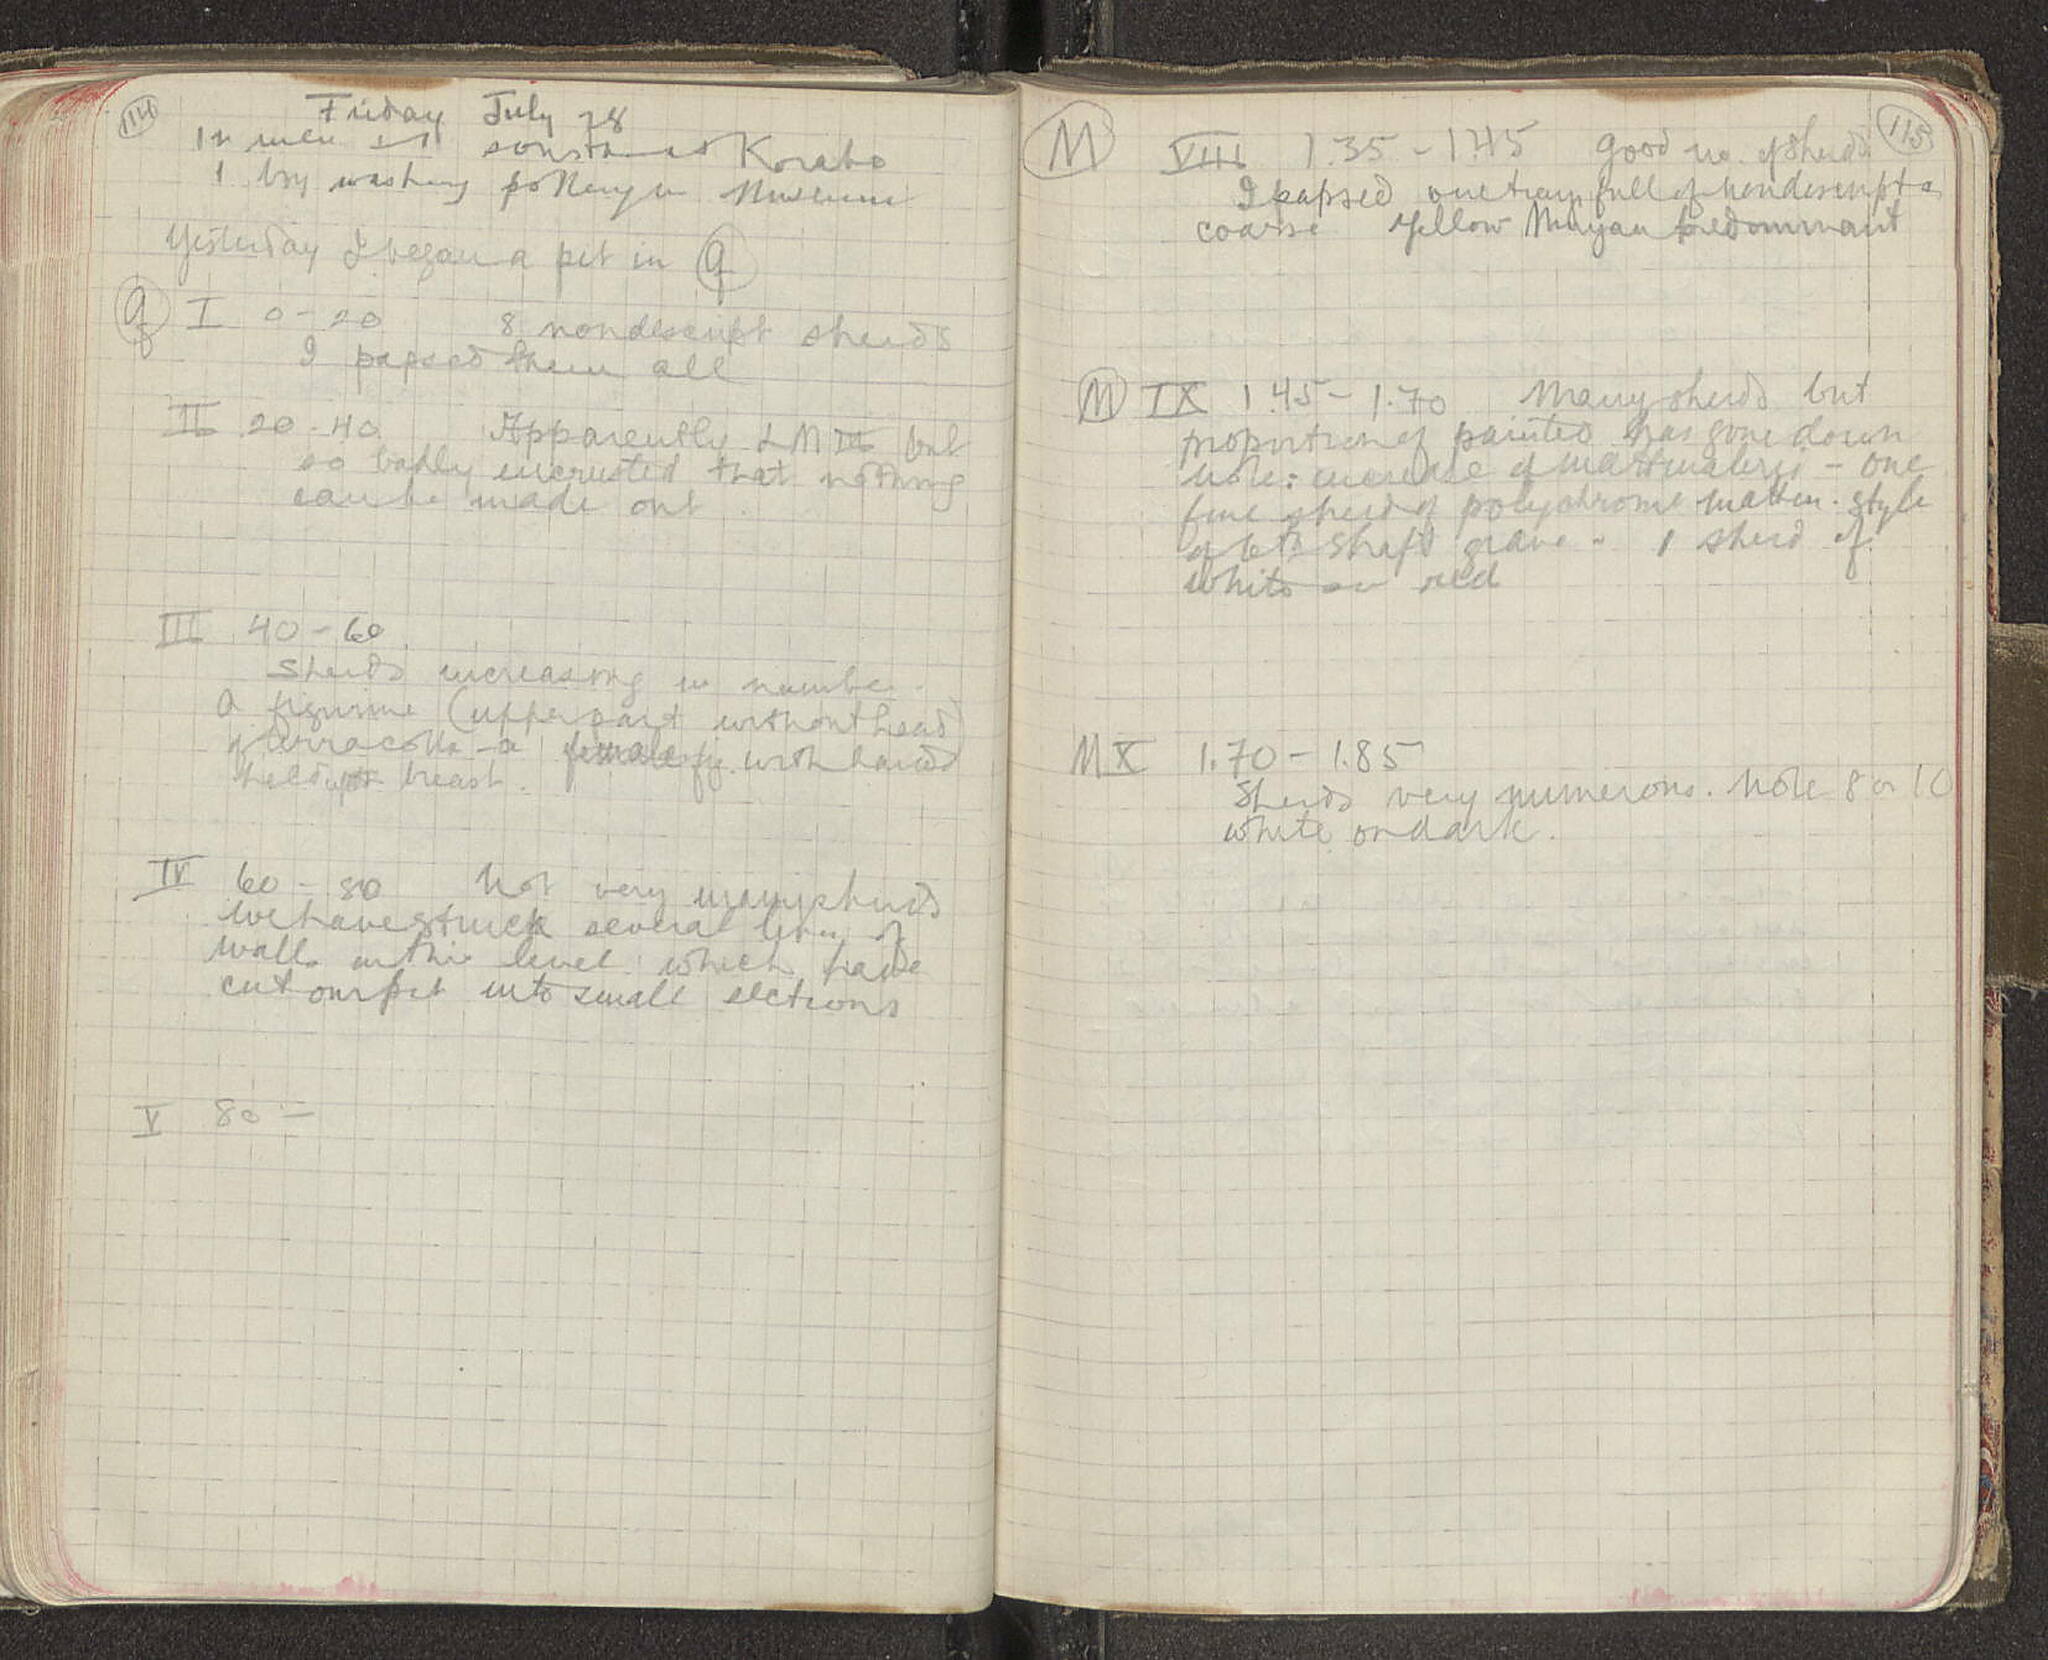 114
Friday July 28
14 men
1 boy washing pottery in Museum
Yesterday I began a pit in q
q I 0-20 8 nondescript sherds
I papsed them all
II 20-40 Apparently LM III but
so badly encrusted that nothing
can be made out.
III 40-60
Sherds increasing in number.
A figurine (upper part without head)
of terracotta - a female fig. with hands
held breast.
IV 60-80 Not very many sherds
We have struck several lines of
walls in this level which have
cut our pit into small sections
V 80-
M VIII 1.35-1.45 Good no. of sherds 115
I papsed one tray full of nondescript &
coarse Yellow Minyan predominant
M IX 1.45-1.70 Many sherds but
proportion of painted has gone down
Note: increase of mattmalerei - one
fine sherd of polychrome mattm. style
of 6th shaft grave. 1 sherd of
white on red
M X 1.70-1.85
Sherds very numerous. Note 8 or 10
white on dark.